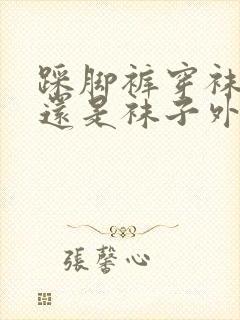 踩脚裤穿袜
還是袜子外
張馨心